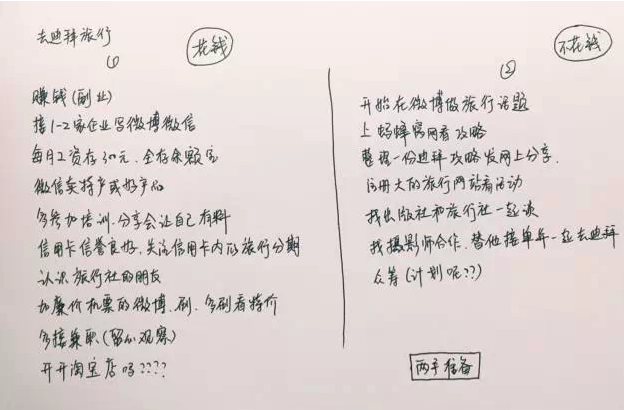 去迪拜旅行
①
花钱
赚钱(副业)
接1-2家企业写微博微信
每月工资存300元,全存余额宝
微信卖特产或好产品
多参加培训.分享会让自己有料
信用卡信誉良好.关注信用卡内的旅行分期
认识旅行社的朋友
加廉价机票的微博.刷.多刷看特价
多接兼职(留心观察)
开开淘宝店吗????
不花钱
②
开始在微博做旅行话题
上蚂蜂窝网看攻略
整理一份迪拜攻略发网上分享.
注册大的旅行网站看活动
找出版社和旅行社一起谈
找摄影师合作.替他接单并一起去迪拜
众筹(计划呢??)
两手准备